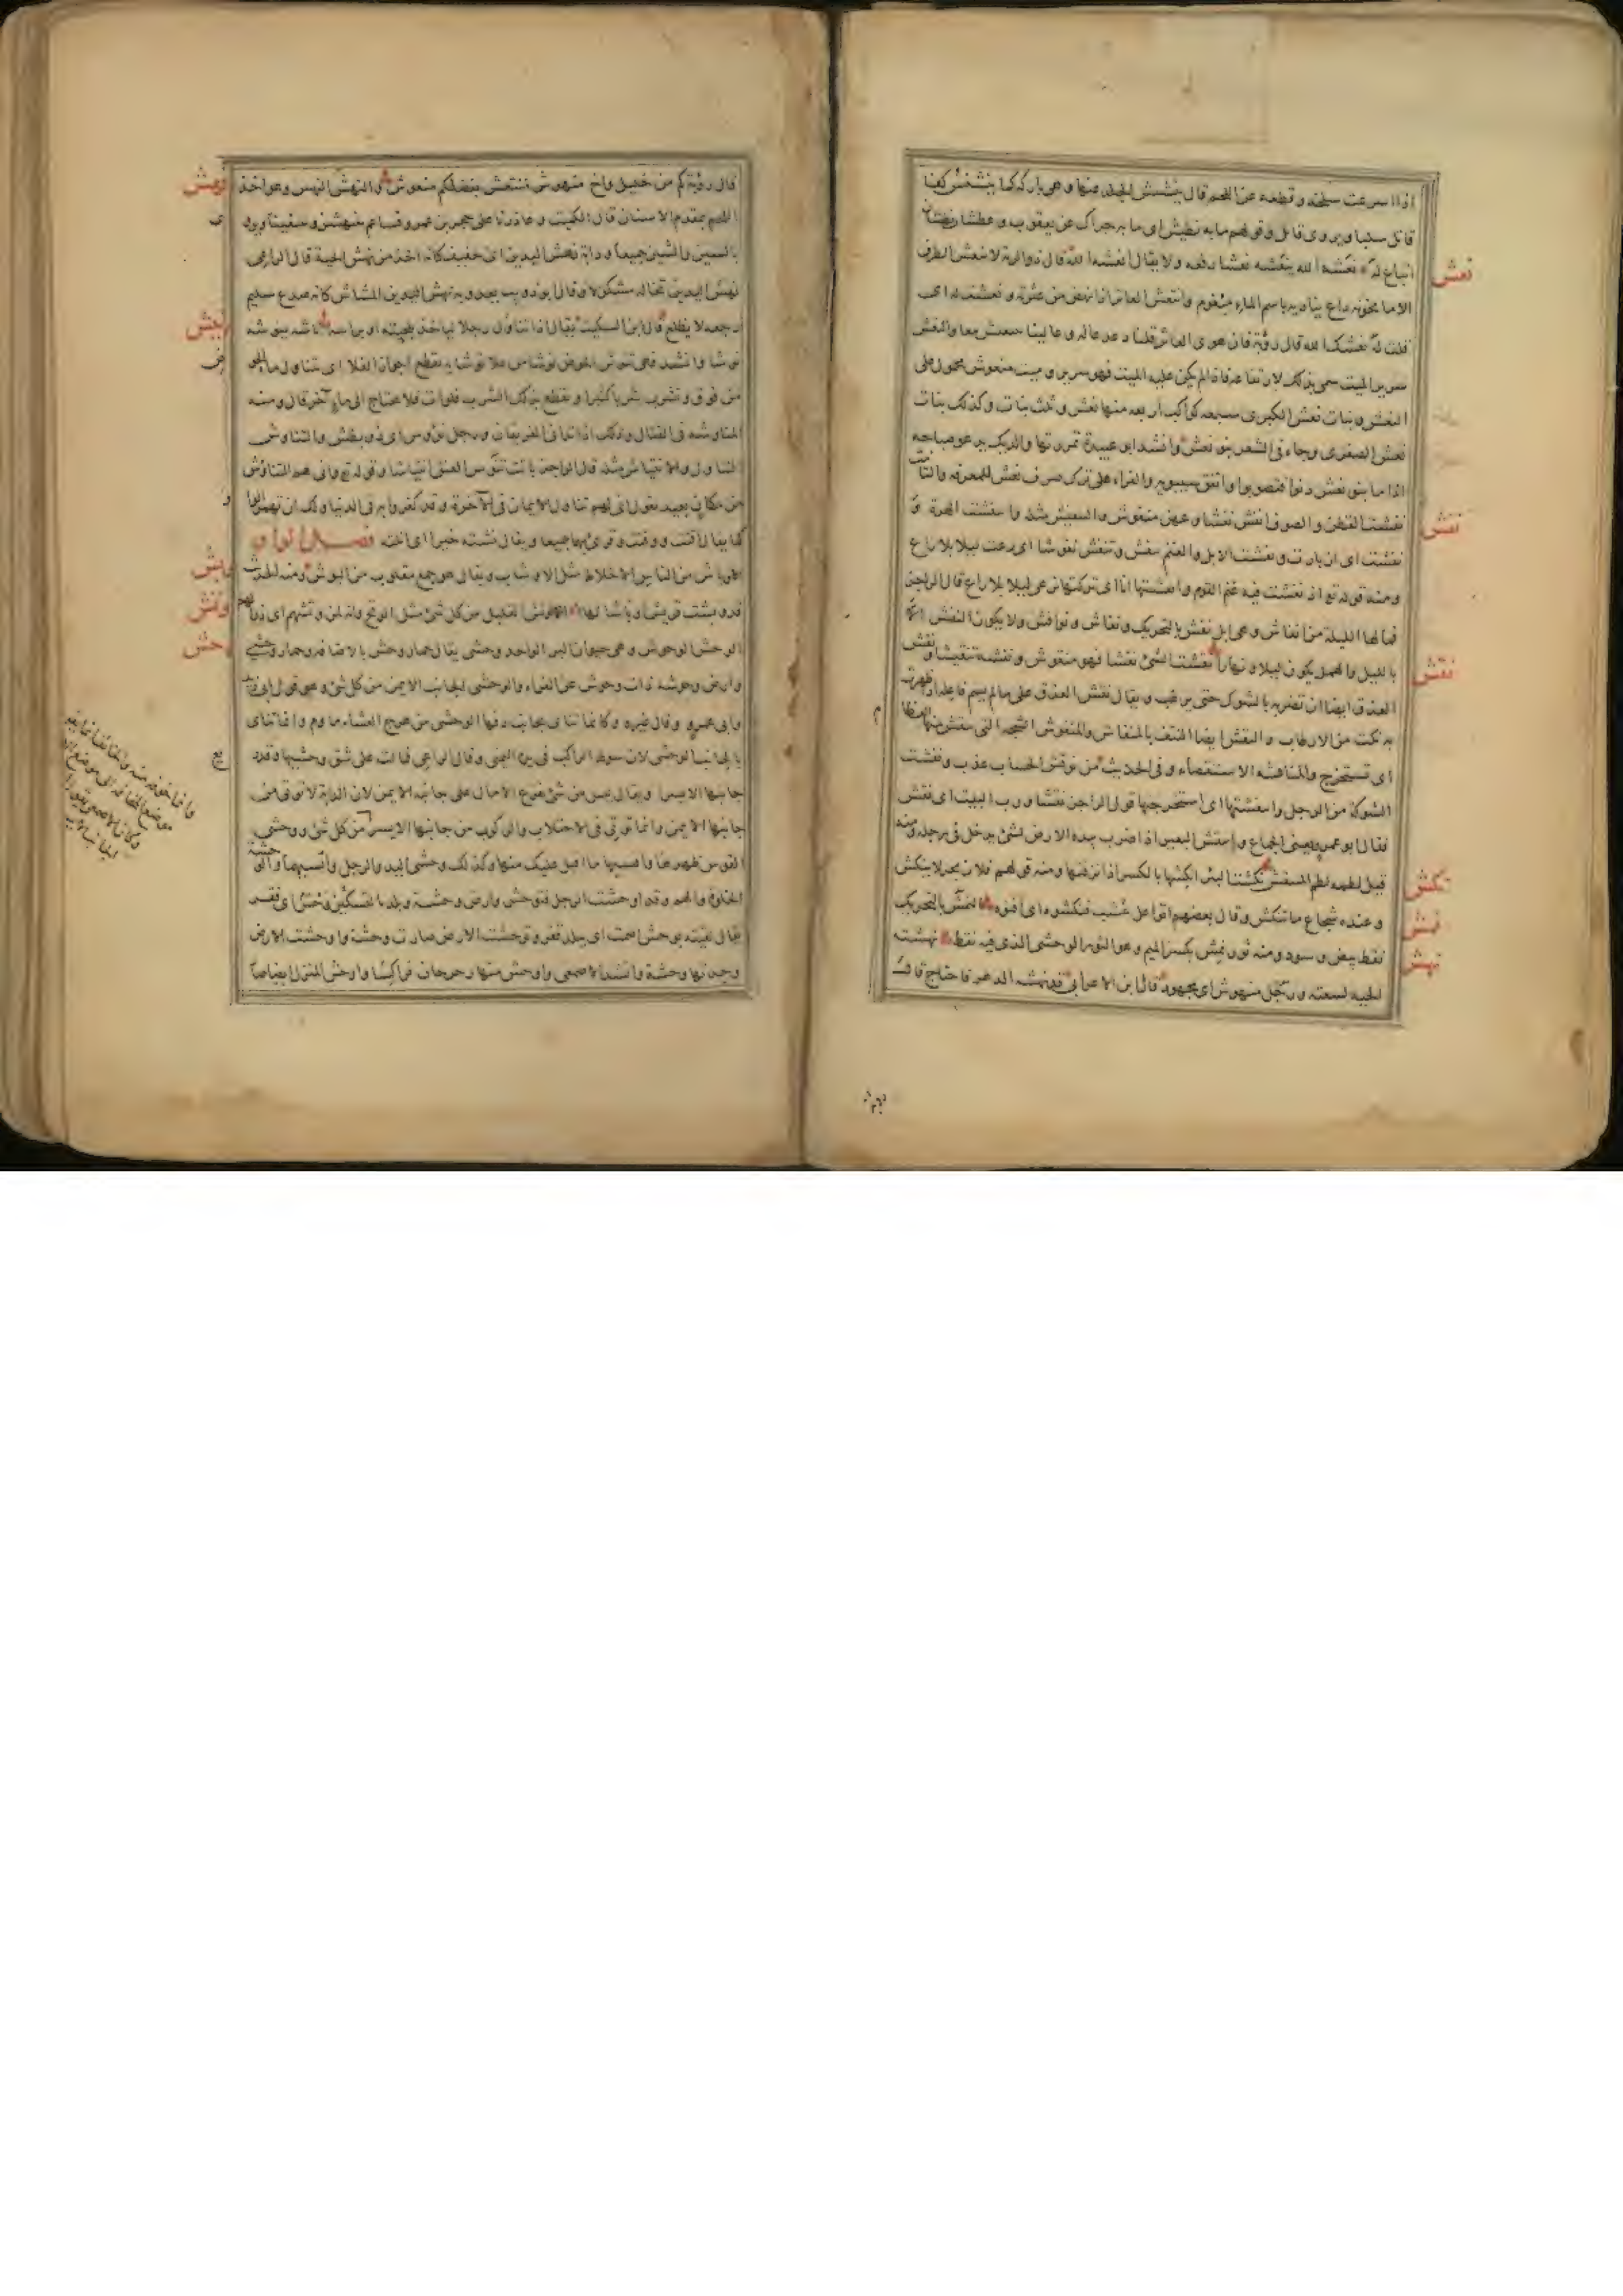 اذا اسرعت سلخه و قطعه عن اللحم قال ينشنش الجلد عنها وهى باركة كما ينشنش كفا
قاتل سلبا ويروى فاتل وقولهم ما به نطيش اى ما به حراك عن يعقوب و عطشان نطشان
اتباع له نعشه الله ينعشه نعشا رفعه ولا يقال انعشه الله قال ذو الرمة لا ينعش الطرف
نعش
الا ما تخونه داع يناديه باسم الماء مبغوم وانتعش العاثر اذا نهض من عثرته و نعشت له اى
قلت له نعشك الله قال رؤبة فان هوى العاثر قلنا دعدعا له وعالينا بتنعيش لعا والنعش
سرير الميت سمى بذلك لارتفاعه فاذا لم يكن عليه الميت فهو سرير و ميت منعوش محمول على
النعش و بنات نعش الكبرى سبعة كواكب اربعة منها نعش و ثلث بنات وكذلك بنات
نعش الصغرى وجاء فى الشعر بنو نعش وانشد ابو عبيدة تمززتها والديك يدعو صباحه
اذا ما بنو نعش دنوا فتصوبوا واتفق سيبويه والفراء على ترك صرف نعش للمعرفة والتانيث
نفشت القطن و الصوف انفش نفشا و عهن منفوش والتنفيش مثله وانتفشت الهرة و
نفش
تنفشت اى ازبارت و نفشت الابل والغنم تنفش وتنفش نفوشا اى رعت ليلا بلا راع
ومنه قوله تع اذ نفشت فيه غنم القوم وانفشتها انا اى تركتها ترعى ليلا بلا راع قال الراجز
فما لها الليلة من انفاش وهى ابل نفش بالتحريك و نفاش و نوافش ولا يكون النفش الا
بالليل والهمل يكون ليلا و نهارا نقشت الشئ نقشا فهو منقوش و نقشته تنقيشا و نقش
نقش
العذق ايضا ان تضربه بالشوك حتى يرطب و يقال نقش العذق على ما لم يسم فاعله اذا ظهرت
به نكت من الارطاب و النقش ايضا النتف بالمنقاش والمنقوش الشجة التى تنقش منها العظام
اى تستخرج والمناقشة الاستقصاء و فى الحديث من نوقش الحساب عذب و نقشت
الشوكة من الرجل وانتقشتها اى استخرجتها قول الراجز نقشا ورب البيت اى نقش
فقال ابو عمرو يعنى الجماع وانتقش البعير اذا ضرب بيده الارض لشئ يدخل فى رجله ومنه
قيل لطمه لطم المنتقش نكشت البئر انكشها بالكسر اذا نزفتها ومنه قولهم فلان بحر لا ينكش
نكش
و عنده شجاعة ما تنكش و قال بعضهم اتوا على عشب فنكشوه اى افنوه النمش بالتحريك
نمش
نقط بيض و سود ومنه ثور نمش بكسر الميم وهو الثور الوحشى الذى فيه نقط نهشته
نهش
الحية لسعته ورجل منهوش اى مجهود قال ابن الاعرابى قد نهشه الدهر فاحتاج قال
قال رؤبة كم من خليل واخ منهوش منتعش بفضلكم منعوش والنهش النهس وهو اخذ
نهش
اللحم بمقدم الاسنان قال الكميت و غادرنا على حجر بن عمرو قشاعم ينتهشن و ينتقينا ويروى
بالسين والشين جميعا و دابة نهش اليدين اى خفيف كانه اخذ من نهش الحية قال الراعى
نهش اليدين تخاله مشكولا وقال ابو ذويب يعدو به نهش المشاش كانه صدع سليم
رجعه لا يظلع قال ابن السكيت يقال اذا تناول رجلا لياخذ بلحيته او براسه ناشه ينوشه
نوش
نوشا وانشد فهى تنوش الحوض نوشا من علا نوشا به تقطع اجواز الفلا اى تتناول ماء الحوض
من فوق و تشرب شربا كثيرا و تقطع بذلك الشرب فلوات فلا تحتاج الى ماء آخر قال ومنه
المناوشة فى القتال وذلك اذا تدانى الفريقان و رجل نووش اى ذو بطش والتناوش
التناول والانتياش مثله قال الراجز باتت تنوش العنق انتياشا و قوله تع وانى لهم التناوش
من مكان بعيد يقول انى لهم تناول الايمان فى الآخرة و قد كفروا به فى الدنيا ولك ان تهمز الواو
كما يقال اقتت ووقتت وقرئ بهما جميعا ويقال نشته خيرا اى انلته فصل الواو
الاوباش من الناس الاخلاط مثل الاوشاب ويقال هو جمع مقلوب من البوش ومنه الحديث
وبش
قد وبشت قريش اوباشا لها الوتش القليل من كل شئ مثل الوتح وانه لمن وتشهم اى رذالهم
وتش
الوحش الوحوش وهى حيوان البر الواحد وحشى يقال حمار وحش بالاضافة وحمار وحشى
وحش
وارض موحوشة ذات وحوش عن الفراء والوحشى الجانب الايمن من كل شئ وهو قول ابى زيد
وابى عمرو وقال عنترة وكانما تناى بجانب دفها الوحشى من هزج العشى مؤوم وانما تناى
بالجانب الوحشى لان سوط الراكب فى يده اليمنى وقال الراعى فمالت على شق وحشيها وقد ريع
جانبها الايسر ويقال ليس من شئ يفزع الا مال على جانبه الايمن لان الدابة لا تؤتى من
جانبها الايمن وانما تؤتى فى الاحتلاب والركوب من جانبها الايسر من كل شئ ووحشى
القوس ظهرها وانسيها ما اقبل عليك منها وكذلك وحشى اليد والرجل وانسيهما والوحشة
الخلوة والهم وقد اوحشت الرجل فتوحش وارض وحشة وبلد بالتسكين وحش اى قفر
يقال لقيته بوحش اصمت اى ببلد قفر وتوحشت الارض صارت وحشة واوحشت الارض
وجدتها وحشة وانشد الاصمعى واوحش منها رحرحان فراكسا واوحش المنزل ايضا صار